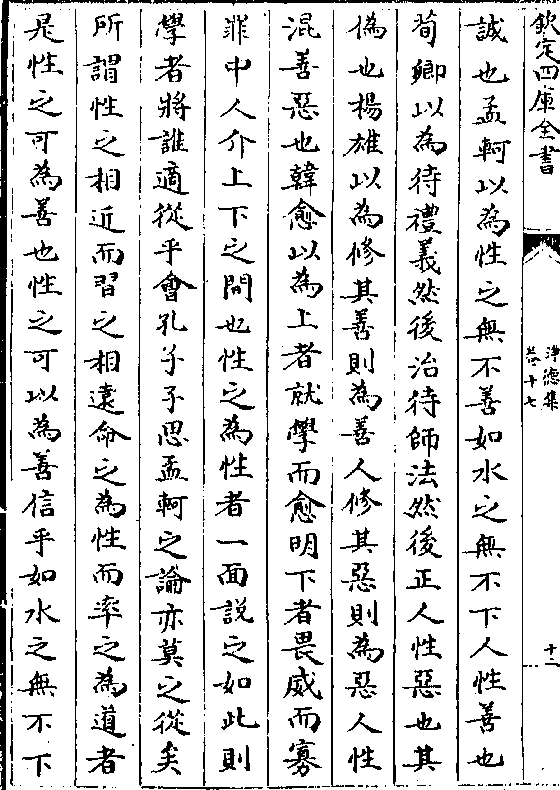 欽定四庫全書
淨德集
卷十七
十一
誠也孟軻以為性之無不善如水之無不下人性善也
荀卿以為待禮義然後治待師法然後正人性惡也其
偽也楊雄以為修其善則為善人修其惡則為惡人性
混善惡也韓愈以為上者就學而愈明下者畏威而寡
罪中人介上下之間也性之為性者一面說之如此則
學者將誰適從乎會孔子子思孟軻之論亦莫之從矣
所謂性之相近而習之相遠命之為性而率之為道者
是性之可為善也性之可以為善信乎如水之無不下